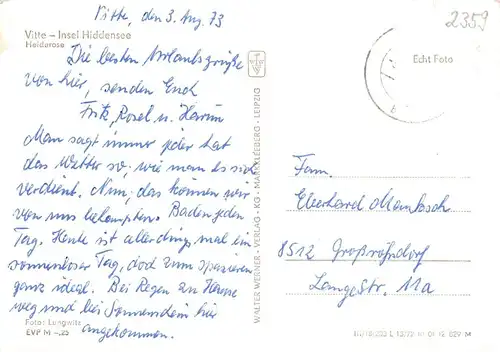 Vitte, den 3. Aug. 73
Vitte – Insel Hiddensee
Heiderose
Die besten Urlaubsgrüße
von hier, senden Euch
Fritz, Rosel u.
Man sagt immer jeder hat
das Wetter so, wie man es sich
verdient. Nun, das können wir
von uns behaupten. Baden jeden
Tag. Heute ist allerdings mal ein
sonnenloser Tag, doch zum spazieren
ganz ideal. Bei Regen zu Hause
weg und bei Sonnenschein hier
angekommen.
Foto: Lungwitz
EVP M –,25
WALTER WERNER - VERLAG - KG - MARKKLEEBERG - LEIPZIG
2359
Echt Foto
Fam.
Eberhard
8512 Großröhrsdorf
Lange Str. 11a